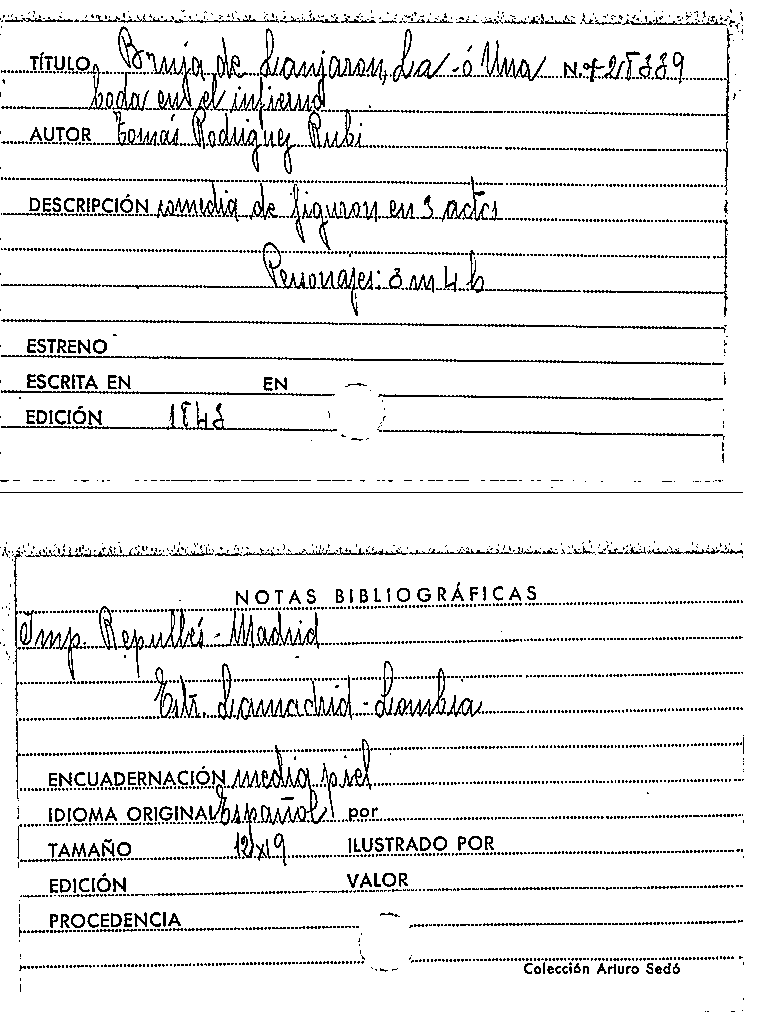 TÍTULO Bruja de Lanjaron, La - ó Una N.º
boda en el infierno
AUTOR Tomás Rodriguez Rubi
DESCRIPCIÓN comedia de figuron en 3 actos
Personajes: 3 m 4 h
ESTRENO
ESCRITA EN EN
EDICIÓN 1843
NOTAS BIBLIOGRÁFICAS
Imp. Repullés - Madrid
Estr. Lamadrid - Lombia
ENCUADERNACIÓN media piel
IDIOMA ORIGINAL Español por
TAMAÑO 12x19 ILUSTRADO POR
EDICIÓN VALOR
PROCEDENCIA
Colección Arturo Sedó